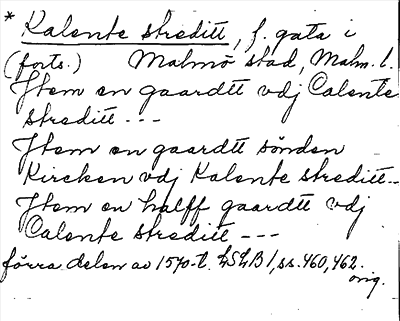 * Kalente streditt, f. gata i
(forts.) Malmö stad, Malm. l.
Jtem en gaardtt vdj Calente
streditt ---
Jtem en gaardtt sönden
Kircken vdj Kalente streditt --
Jtem en halff gaardtt vdj
Calente streditt ---
förra delen av 1570-t. LSLB 1, ss. 460, 462.
orig.